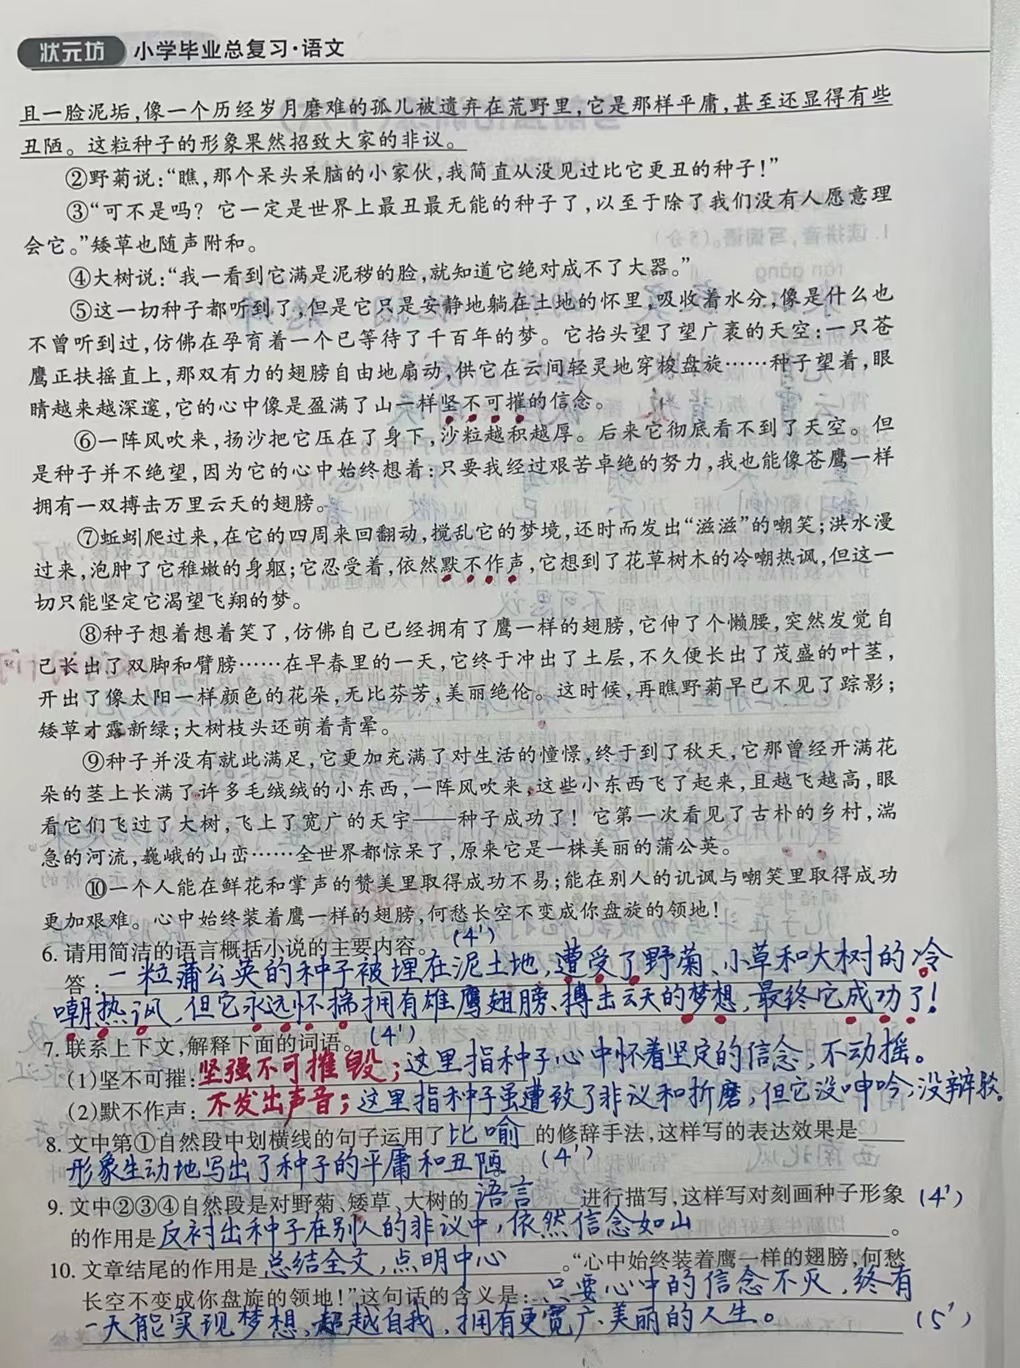 状元坊 小学毕业总复习·语文
且一脸泥垢,像一个历经岁月磨难的孤儿被遗弃在荒野里,它是那样平庸,甚至还显得有些
丑陋。这粒种子的形象果然招致大家的非议。
②野菊说:“瞧,那个呆头呆脑的小家伙,我简直从没见过比它更丑的种子!”
③“可不是吗?它一定是世界上最丑最无能的种子了,以至于除了我们没有人愿意理
会它。”矮草也随声附和。
④大树说:“我一看到它满是泥秽的脸,就知道它绝对成不了大器。”
⑤这一切种子都听到了,但是它只是安静地躺在土地的怀里,吸收着水分,像是什么也
不曾听到过,仿佛在孕育着一个已等待了千百年的梦。它抬头望了望广袤的天空:一只苍
鹰正扶摇直上,那双有力的翅膀自由地扇动,供它在云间轻灵地穿梭盘旋……种子望着,眼
睛越来越深邃,它的心中像是盈满了山一样坚不可摧的信念。
⑥一阵风吹来,扬沙把它压在了身下,沙粒越积越厚。后来它彻底看不到了天空。但
是种子并不绝望,因为它的心中始终想着:只要我经过艰苦卓绝的努力,我也能像苍鹰一样
拥有一双搏击万里云天的翅膀。
⑦蚯蚓爬过来,在它的四周来回翻动,搅乱它的梦境,还时而发出“滋滋”的嘲笑;洪水漫
过来,泡肿了它稚嫩的身躯;它忍受着,依然默不作声,它想到了花草树木的冷嘲热讽,但这一
切只能坚定它渴望飞翔的梦。
⑧种子想着想着笑了,仿佛自己已经拥有了鹰一样的翅膀,它伸了个懒腰,突然发觉自
己长出了双脚和臂膀……在早春里的一天,它终于冲出了土层,不久便长出了茂盛的叶茎,
开出了像太阳一样颜色的花朵,无比芬芳,美丽绝伦。这时候,再瞧野菊早已不见了踪影;
矮草才露新绿;大树枝头还萌着青晕。
⑨种子并没有就此满足,它更加充满了对生活的憧憬,终于到了秋天,它那曾经开满花
朵的茎上长满了许多毛绒绒的小东西,一阵风吹来,这些小东西飞了起来,且越飞越高,眼
看它们飞过了大树,飞上了宽广的天宇——种子成功了!它第一次看见了古朴的乡村,湍
急的河流,巍峨的山峦……全世界都惊呆了,原来它是一株美丽的蒲公英。
⑩一个人能在鲜花和掌声的赞美里取得成功不易;能在别人的讥讽与嘲笑里取得成功
更加艰难。心中始终装着鹰一样的翅膀,何愁长空不变成你盘旋的领地!
6. 请用简洁的语言概括小说的主要内容。(4')
答:一粒蒲公英的种子被埋在泥土地,遭受了野菊、小草和大树的冷
嘲热讽,但它永远怀揣拥有雄鹰翅膀、搏击云天的梦想,最终它成功了!
7. 联系上下文,解释下面的词语。(4')
(1)坚不可摧:坚强不可摧毁;这里指种子心中怀着坚定的信念,不动摇。
(2)默不作声:不发出声音;这里指种子虽遭致了非议和折磨,但它没呻吟,没辩驳。
8. 文中第①自然段中划横线的句子运用了比喻的修辞手法,这样写的表达效果是
形象生动地写出了种子的平庸和丑陋 (4')
9. 文中②③④自然段是对野菊、矮草、大树的语言进行描写,这样写对刻画种子形象 (4')
的作用是反衬出种子在别人的非议中,依然信念如山。
10. 文章结尾的作用是总结全文,点明中心。“心中始终装着鹰一样的翅膀,何愁
长空不变成你盘旋的领地!”这句话的含义是:只要心中的信念不灭,终有
一天能实现梦想,超越自我,拥有更宽广、美丽的人生。(5')